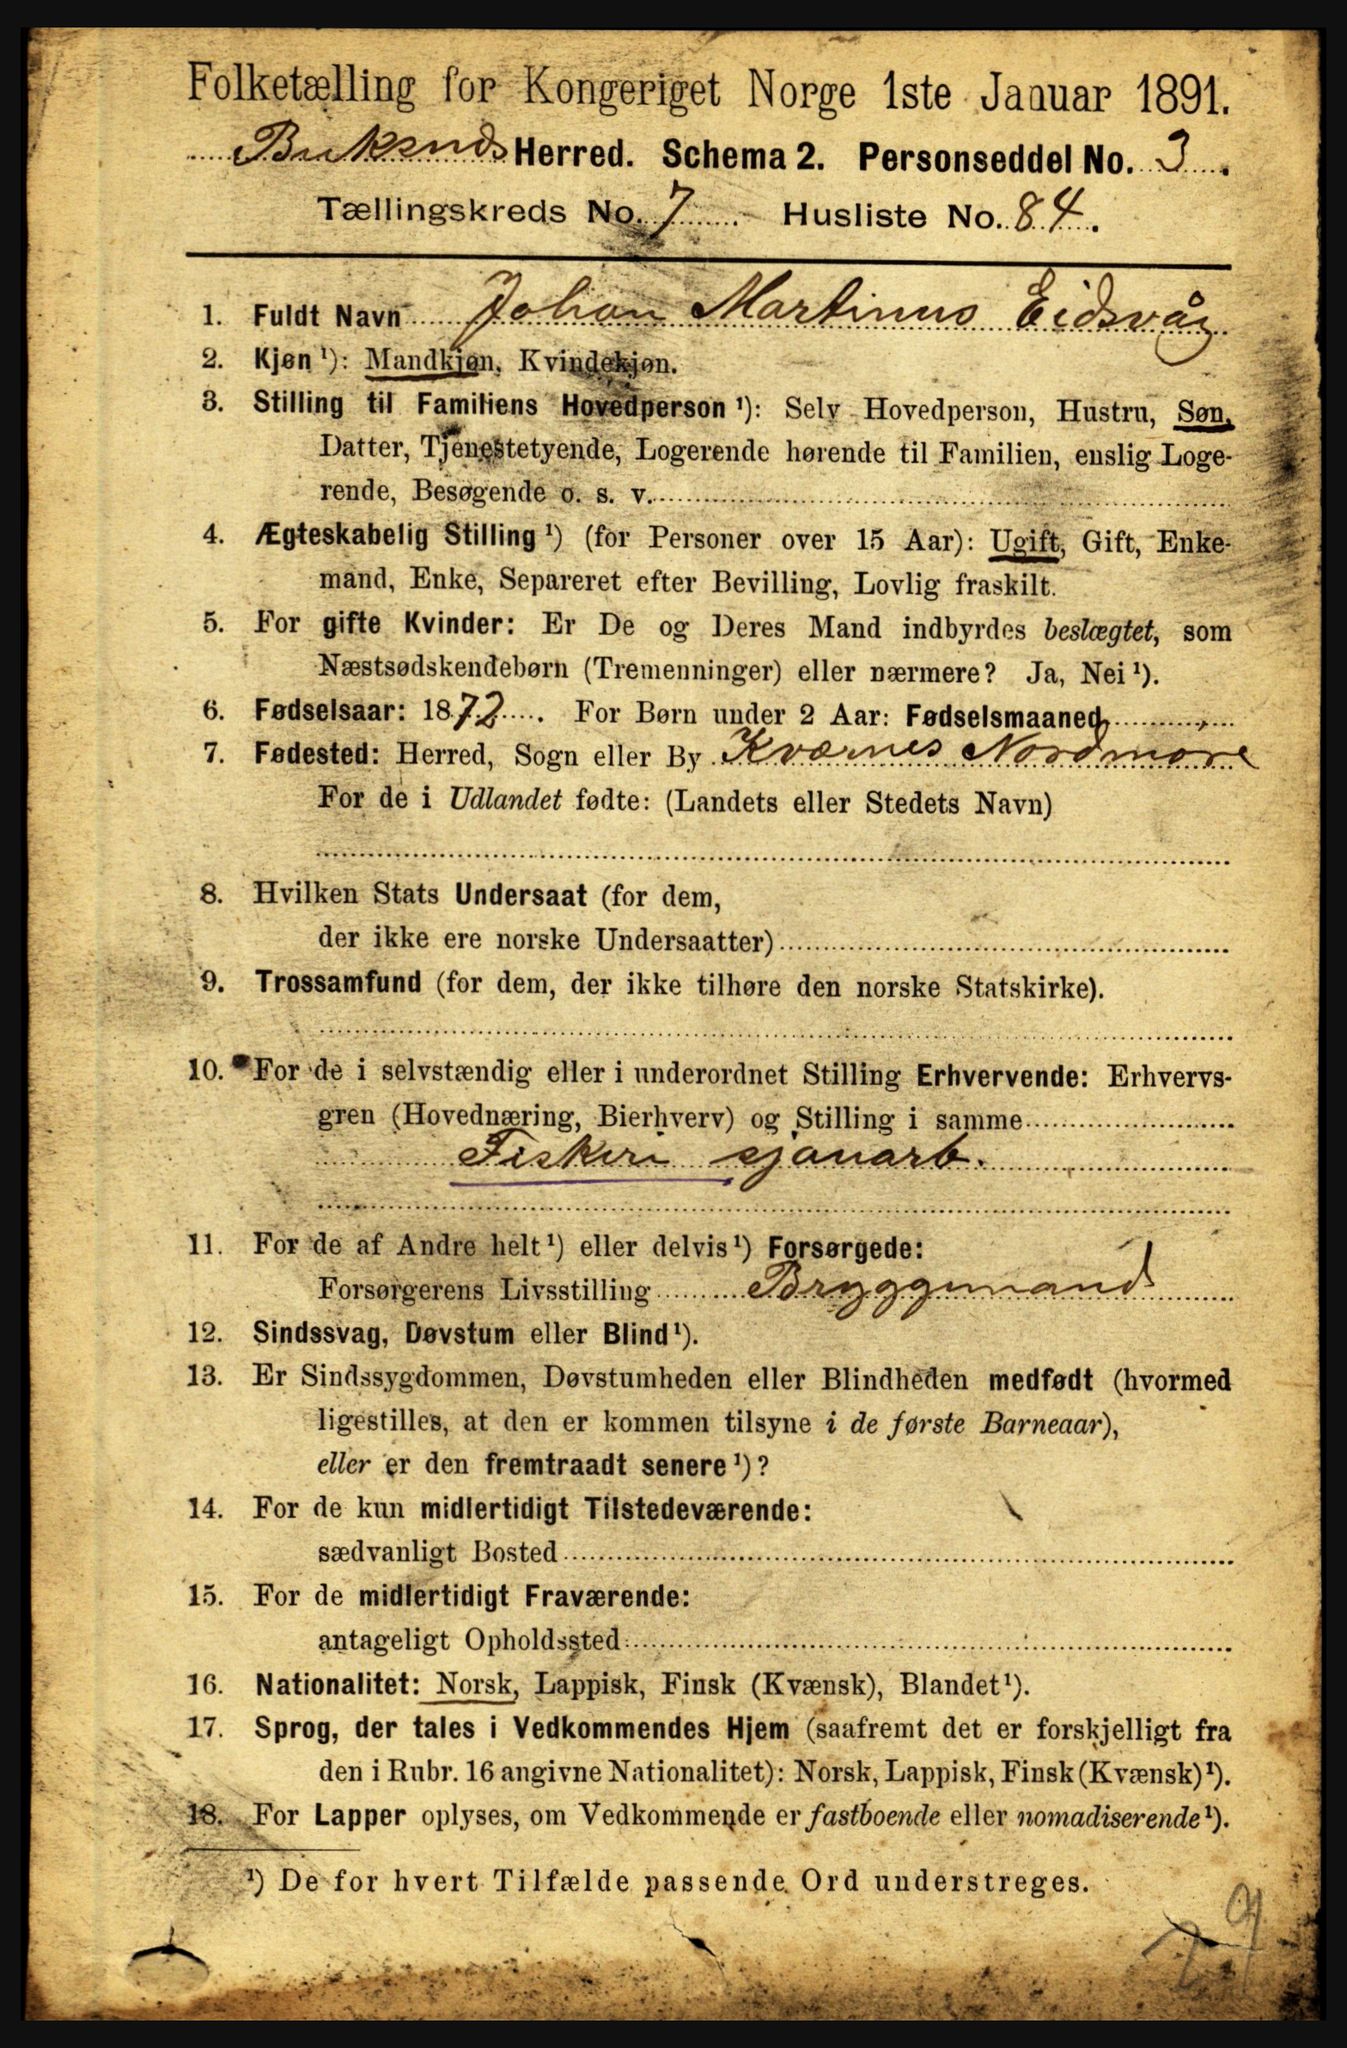 Folketælling for Kongeriget Norge 1ste Januar 1891.
Buksnds Herred. Schema 2. Personseddel No. 3.
Tællingskreds No. 7 Husliste No. 84.
1. Fuldt Navn Johan Martinus Eidsvåg
2. Kjøn ¹): Mandkjøn, Kvindekjøn.
3. Stilling til Familiens Hovedperson ¹): Selv Hovedperson, Hustru, Søn,
Datter, Tjenestetyende, Logerende hørende til Familien, enslig Loge-
rende, Besøgende o. s. v.
4. Ægteskabelig Stilling ¹) (for Personer over 15 Aar): Ugift, Gift, Enke-
mand, Enke, Separeret efter Bevilling, Lovlig fraskilt.
5. For gifte Kvinder: Er De og Deres Mand indbyrdes beslægtet, som
Næstsødskendebørn (Tremenninger) eller nærmere? Ja, Nei ¹).
6. Fødselsaar: 1872. For Børn under 2 Aar: Fødselsmaaned
7. Fødested: Herred, Sogn eller By Kværnes Nordmøre
For de i Udlandet fødte: (Landets eller Stedets Navn)
8. Hvilken Stats Undersaat (for dem,
der ikke ere norske Undersaatter)
9. Trossamfund (for dem, der ikke tilhøre den norske Statskirke).
10. For de i selvstændig eller i underordnet Stilling Erhvervende: Erhvervs-
gren (Hovednæring, Bierhverv) og Stilling i samme
Fiskeri sjauarb.
11. For de af Andre helt ¹) eller delvis ¹) Forsørgede:
Forsørgerens Livsstilling Bryggemand
12. Sindssvag, Døvstum eller Blind ¹).
13. Er Sindssygdommen, Døvstumheden eller Blindheden medfødt (hvormed
ligestilles, at den er kommen tilsyne i de første Barneaar),
eller er den fremtraadt senere ¹)?
14. For de kun midlertidigt Tilstedeværende:
sædvanligt Bosted
15. For de midlertidigt Fraværende:
antageligt Opholdssted
16. Nationalitet: Norsk, Lappisk, Finsk (Kvænsk), Blandet ¹).
17. Sprog, der tales i Vedkommendes Hjem (saafremt det er forskjelligt fra
den i Rubr. 16 angivne Nationalitet): Norsk, Lappisk, Finsk (Kvænsk) ¹).
18. For Lapper oplyses, om Vedkommende er fastboende eller nomadiserende ¹).
¹) De for hvert Tilfælde passende Ord understreges.